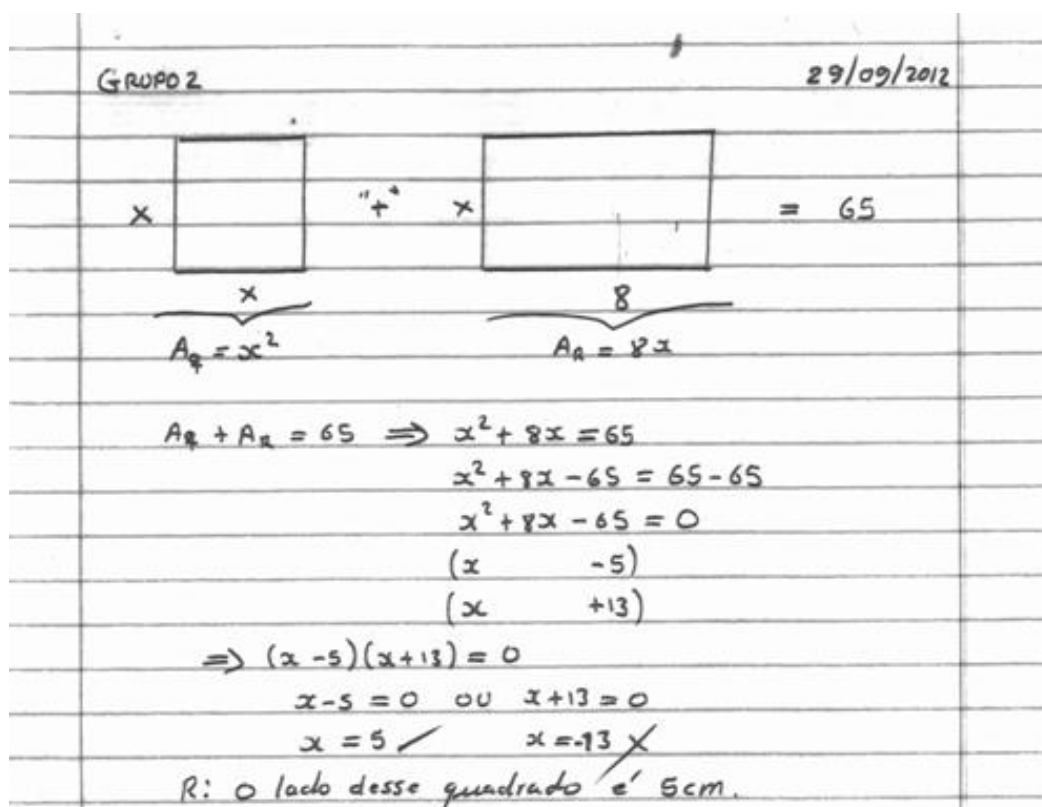 GRUPO 2 29/09/2012
x "+" x = 65
x 8
Aq = x² AR = 8x
Aq + AR = 65 ⇒ x² + 8x = 65
x² + 8x - 65 = 65 - 65
x² + 8x - 65 = 0
(x -5)
(x +13)
⇒ (x - 5)(x + 13) = 0
x - 5 = 0 ou x + 13 = 0
x = 5 ✓ x = -13 ✗
R: o lado desse quadrado é 5cm.